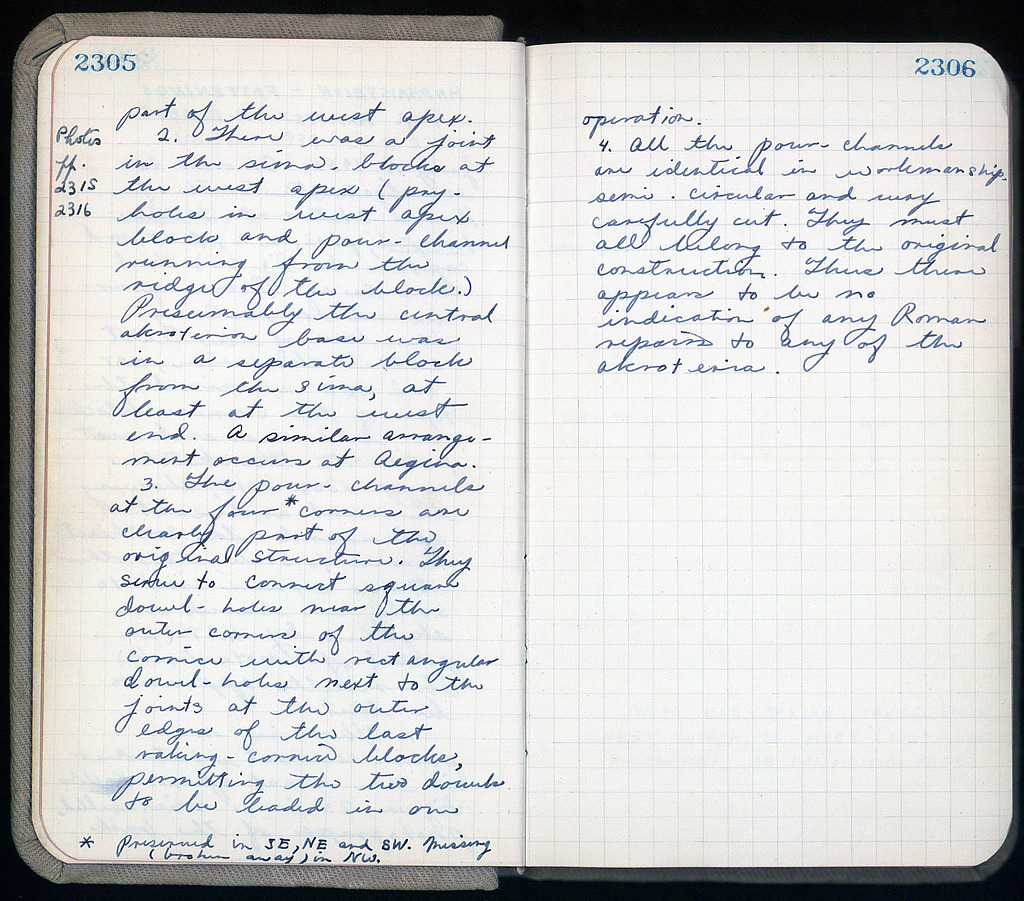 2305
part of the west apex.
Photos
pp.
2315
2316
2. There was a joint
in the sima-blocks at
the west apex (pry-
holes in west apex
block and pour-channel
running from the
ridge of the block.)
Presumably the central
akroterion base was
in a separate block
from the sima, at
least at the west
end. A similar arrange-
ment occurs at Aegina.
3. The pour-channels
at the four * corners are
clearly part of the
original structure. They
serve to connect square
dowel-holes near the
outer corners of the
cornice with rectangular
dowel-holes next to the
joints at the outer
edges of the last
raking-cornice blocks,
permitting the two dowels
to be leaded in one
* Preserved in SE, NE and SW. Missing
(broken away) in NW.
2306
operation.
4. All the pour-channels
are identical in workmanship,
semi-circular and very
carefully cut. They must
all belong to the original
construction. Thus there
appears to be no
indication of any Roman
repairs to any of the
akroteria.